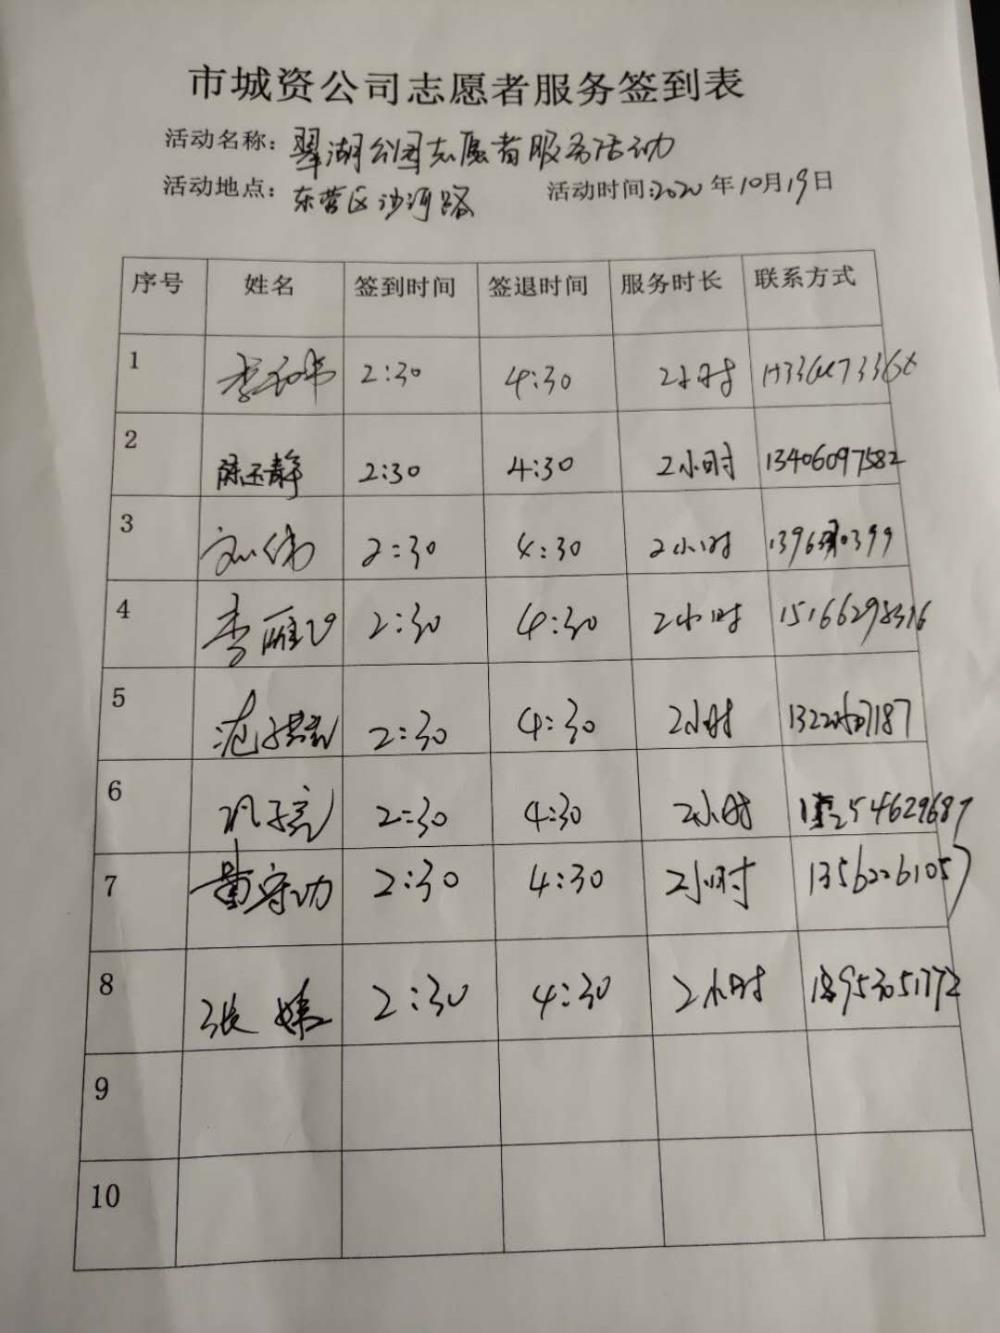 市城资公司志愿者服务签到表
活动名称：翠湖公园志愿者服务活动
活动地点：东营区沙河路 活动时间：2020年10月19日
序号 姓名 签到时间 签退时间 服务时长 联系方式
1 李 2:30 4:30 2小时
2 陈玉静 2:30 4:30 2小时 13406097582
3 刘伟 2:30 4:30 2小时
4 李雁飞 2:30 4:30 2小时
5 范 2:30 4:30 2小时
6 2:30 4:30 2小时
7 董守功 2:30 4:30 2小时 13562261057
8 张 2:30 4:30 2小时 18953051772
9
10